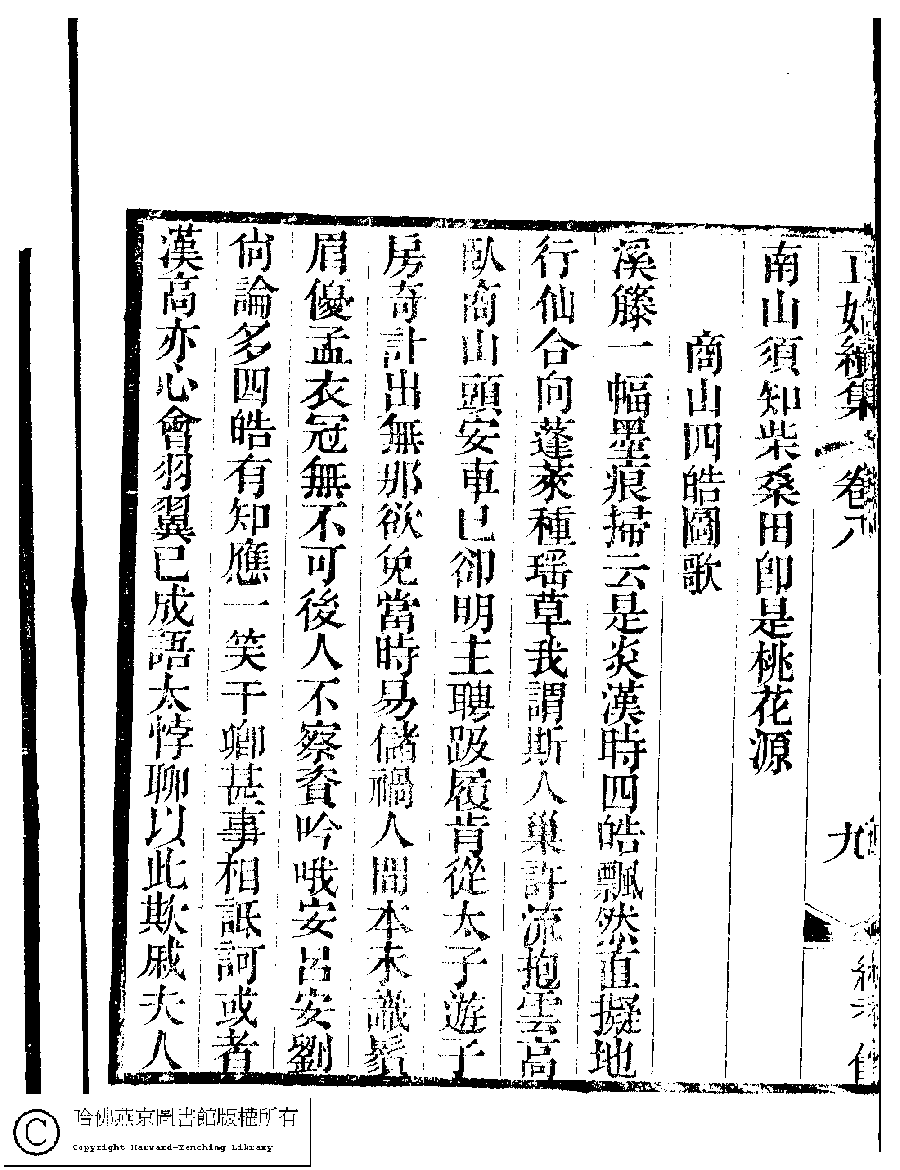 正始續集 卷八 九
南山須知柴桑田卽是桃花源
商山四皓圖歌
溪籐一幅墨痕掃云是炎漢時四皓飄然直擬地
行仙合向蓬萊種瑶草我謂斯人巢許流抱雲高
臥商山頭安車已卻明主聘跋履肯從太子遊子
房奇計出無那欲免當時易儲禍人間本未識鬚
眉優孟衣冠無不可後人不察資吟哦安呂安劉
尙論多四皓有知應一笑干卿甚事相詆訶或者
漢高亦心會羽翼已成語太悖聊以此欺戚夫人
哈佛燕京圖書館版權所有
Copyright Harvard-Yenching Library